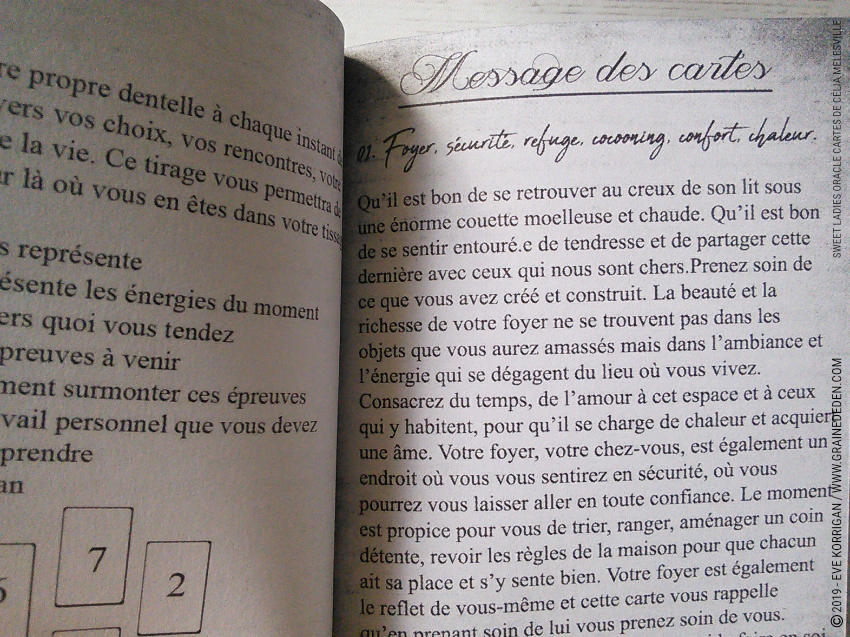 re propre dentelle à chaque instant
vers vos choix, vos rencontres,
e la vie. Ce tirage vous permettra
r là où vous en êtes dans votre
s représente
ésente les énergies du moment
ers quoi vous tendez
preuves à venir
ment surmonter ces épreuves
vail personnel que vous devez
prendre
an
7
2
6
Message des cartes
01. Foyer, sécurité, refuge, cocooning, confort, chaleur.
Qu'il est bon de se retrouver au creux de son lit sous
une énorme couette moelleuse et chaude. Qu'il est bon
de se sentir entouré.e de tendresse et de partager cette
dernière avec ceux qui nous sont chers.Prenez soin de
ce que vous avez créé et construit. La beauté et la
richesse de votre foyer ne se trouvent pas dans les
objets que vous aurez amassés mais dans l'ambiance et
l'énergie qui se dégagent du lieu où vous vivez.
Consacrez du temps, de l'amour à cet espace et à ceux
qui y habitent, pour qu'il se charge de chaleur et acquiert
une âme. Votre foyer, votre chez-vous, est également un
endroit où vous vous sentirez en sécurité, où vous
pourrez vous laisser aller en toute confiance. Le moment
est propice pour vous de trier, ranger, aménager un coin
détente, revoir les règles de la maison pour que chacun
ait sa place et s'y sente bien. Votre foyer est également
le reflet de vous-même et cette carte vous rappelle
qu'en prenant soin de lui vous prenez soin de vous.
© 2019 - EVE KORRIGAN / WWW.GRAINEDEDEN.COM
SWEET LADIES ORACLE CARTES DE CÉLIA MELESVILLE